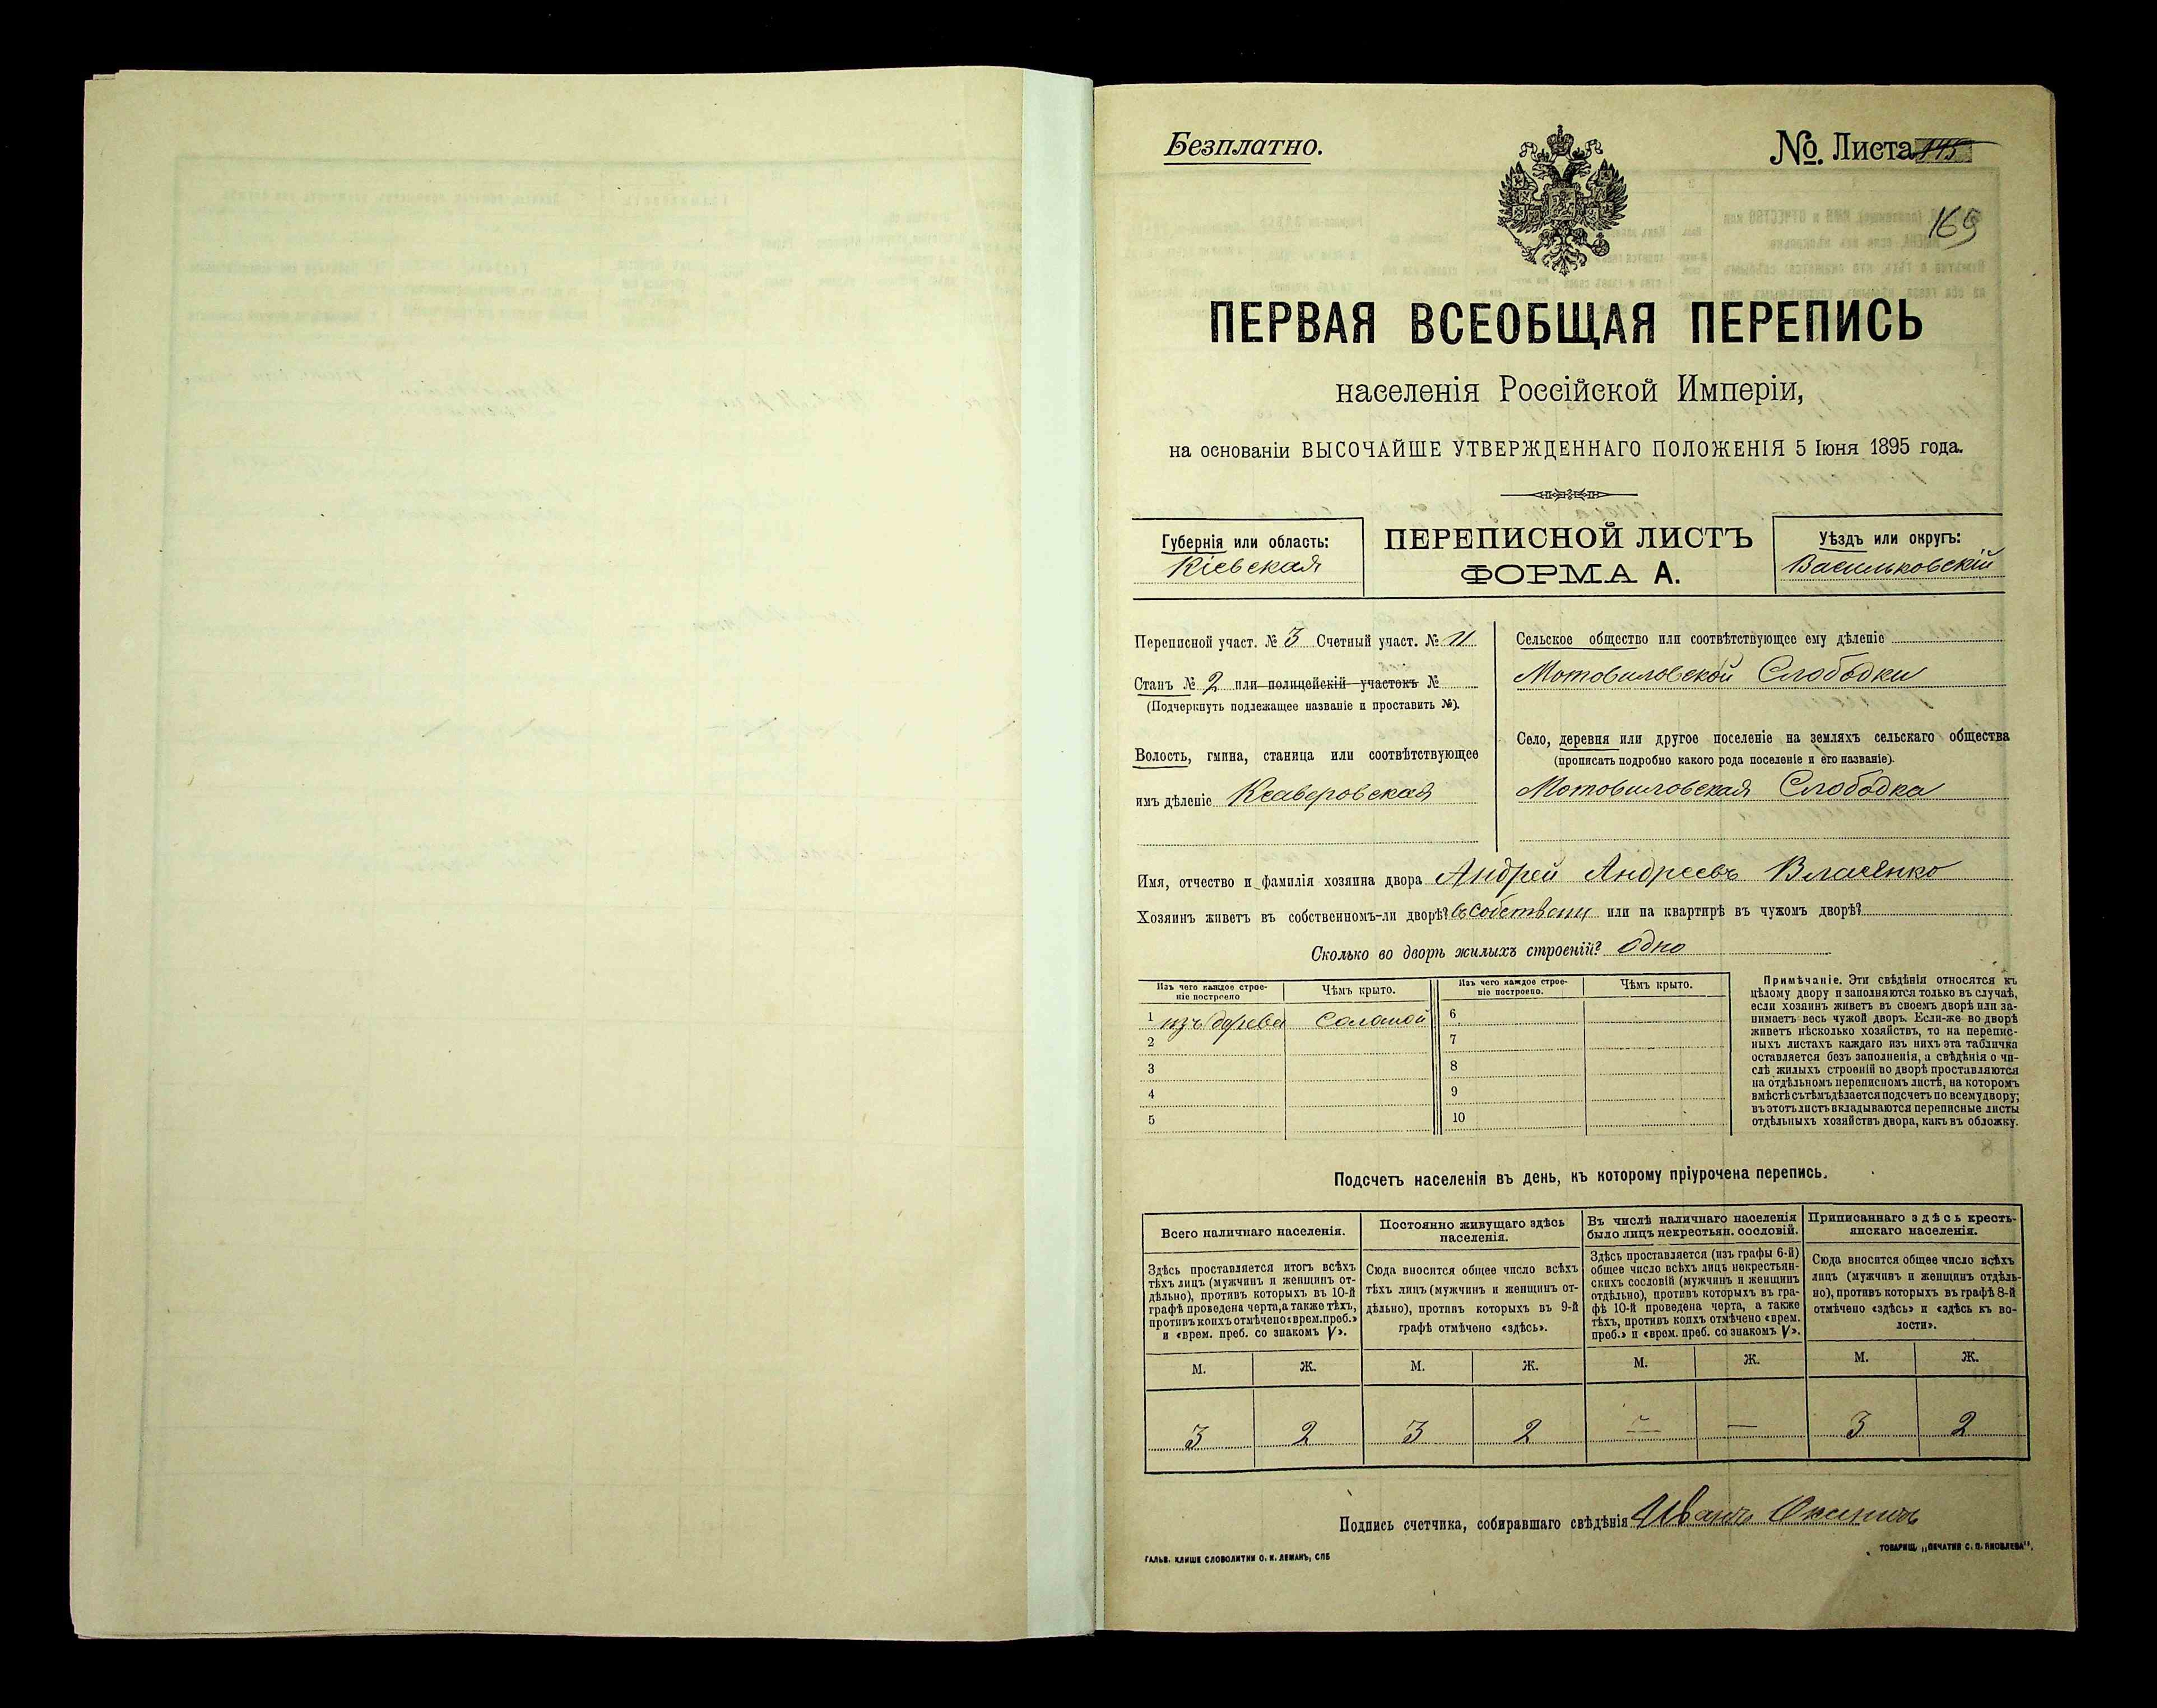 Безплатно.
№. Листа
169
ПЕРВАЯ ВСЕОБЩАЯ ПЕРЕПИСЬ
населенія Россійской Имперіи,
на основаніи ВЫСОЧАЙШЕ УТВЕРЖДЕННАГО ПОЛОЖЕНІЯ 5 Іюня 1895 года.
Губернія или область:
Кіевская
ПЕРЕПИСНОЙ ЛИСТЪ
ФОРМА А.
Уѣздъ или округъ:
Васильковскій
Переписной участ. № 3 Счетный участ. № 11
Станъ № 2 или полицейскій участокъ №
(Подчеркнуть подлежащее названіе и проставить №).
Волость, гмина, станица или соотвѣтствующее
имъ дѣленіе Ксаверовская
Сельское общество или соотвѣтствующее ему дѣленіе
Мотовиловской Слободки
Село, деревня или другое поселеніе на земляхъ сельскаго общества
(прописать подробно какого рода поселеніе и его названіе).
Мотовиловская Слободка
Имя, отчество и фамилія хозяина двора Андрей Андреевъ Власенко
Хозяинъ живетъ въ собственномъ-ли дворѣ? въ собствени или на квартирѣ въ чужомъ дворѣ?
Сколько во дворѣ жилыхъ строеній? одно
Изъ чего каждое строе-
ніе построено
Чѣмъ крыто.
Изъ чего каждое строе-
ніе построено.
Чѣмъ крыто.
1 изъ дерева соломой
2
3
4
5
6
7
8
9
10
Примѣчаніе. Эти свѣдѣнія относятся къ
цѣлому двору и заполняются только въ случаѣ,
если хозяинъ живетъ въ своемъ дворѣ или за-
нимаетъ весь чужой дворъ. Если-же во дворѣ
живетъ нѣсколько хозяйствъ, то на перепис-
ныхъ листахъ каждаго изъ нихъ эта табличка
оставляется безъ заполненія, а свѣдѣнія о чи-
слѣ жилыхъ строеній во дворѣ проставляются
на отдѣльномъ переписномъ листѣ, на которомъ
вмѣстѣ съ тѣмъ дѣлается подсчетъ по всему двору;
въ этотъ листъ вкладываются переписные листы
отдѣльныхъ хозяйствъ двора, какъ въ обложку.
Подсчетъ населенія въ день, къ которому пріурочена перепись.
Всего наличнаго населенія.
Здѣсь проставляется итогъ всѣхъ
тѣхъ лицъ (мужчинъ и женщинъ от-
дѣльно), противъ которыхъ въ 10-й
графѣ проведена черта, а также тѣхъ,
противъ коихъ отмѣчено «врем. преб.»
и «врем. преб. со знакомъ V».
Постоянно живущаго здѣсь
населенія.
Сюда вносится общее число всѣхъ
тѣхъ лицъ (мужчинъ и женщинъ от-
дѣльно), противъ которыхъ въ 9-й
графѣ отмѣчено «здѣсь».
Въ числѣ наличнаго населенія
было лицъ некрестьян. сословій.
Здѣсь проставляется (изъ графы 6-й)
общее число всѣхъ лицъ некрестьян-
скихъ сословій (мужчинъ и женщинъ
отдѣльно), противъ которыхъ въ гра-
фѣ 10-й проведена черта, а также
тѣхъ, противъ коихъ отмѣчено «врем.
преб.» и «врем. преб. со знакомъ V».
Приписаннаго здѣсь кресть-
янскаго населенія.
Сюда вносится общее число всѣхъ
лицъ (мужчинъ и женщинъ отдѣль-
но), противъ которыхъ въ графѣ 8-й
отмѣчено «здѣсь» и «здѣсь къ во-
лости».
М. Ж. М. Ж. М. Ж. М. Ж.
3 2 3 2 — — 3 2
Подпись счетчика, собиравшаго свѣдѣнія Иванъ
ГАЛЬВ. КЛИШЕ СЛОВОЛИТНИ О. И. ЛЕМАНЪ, СПБ
ТОВАРИЩ. „ПЕЧАТНЯ С. П. ЯКОВЛЕВА“.